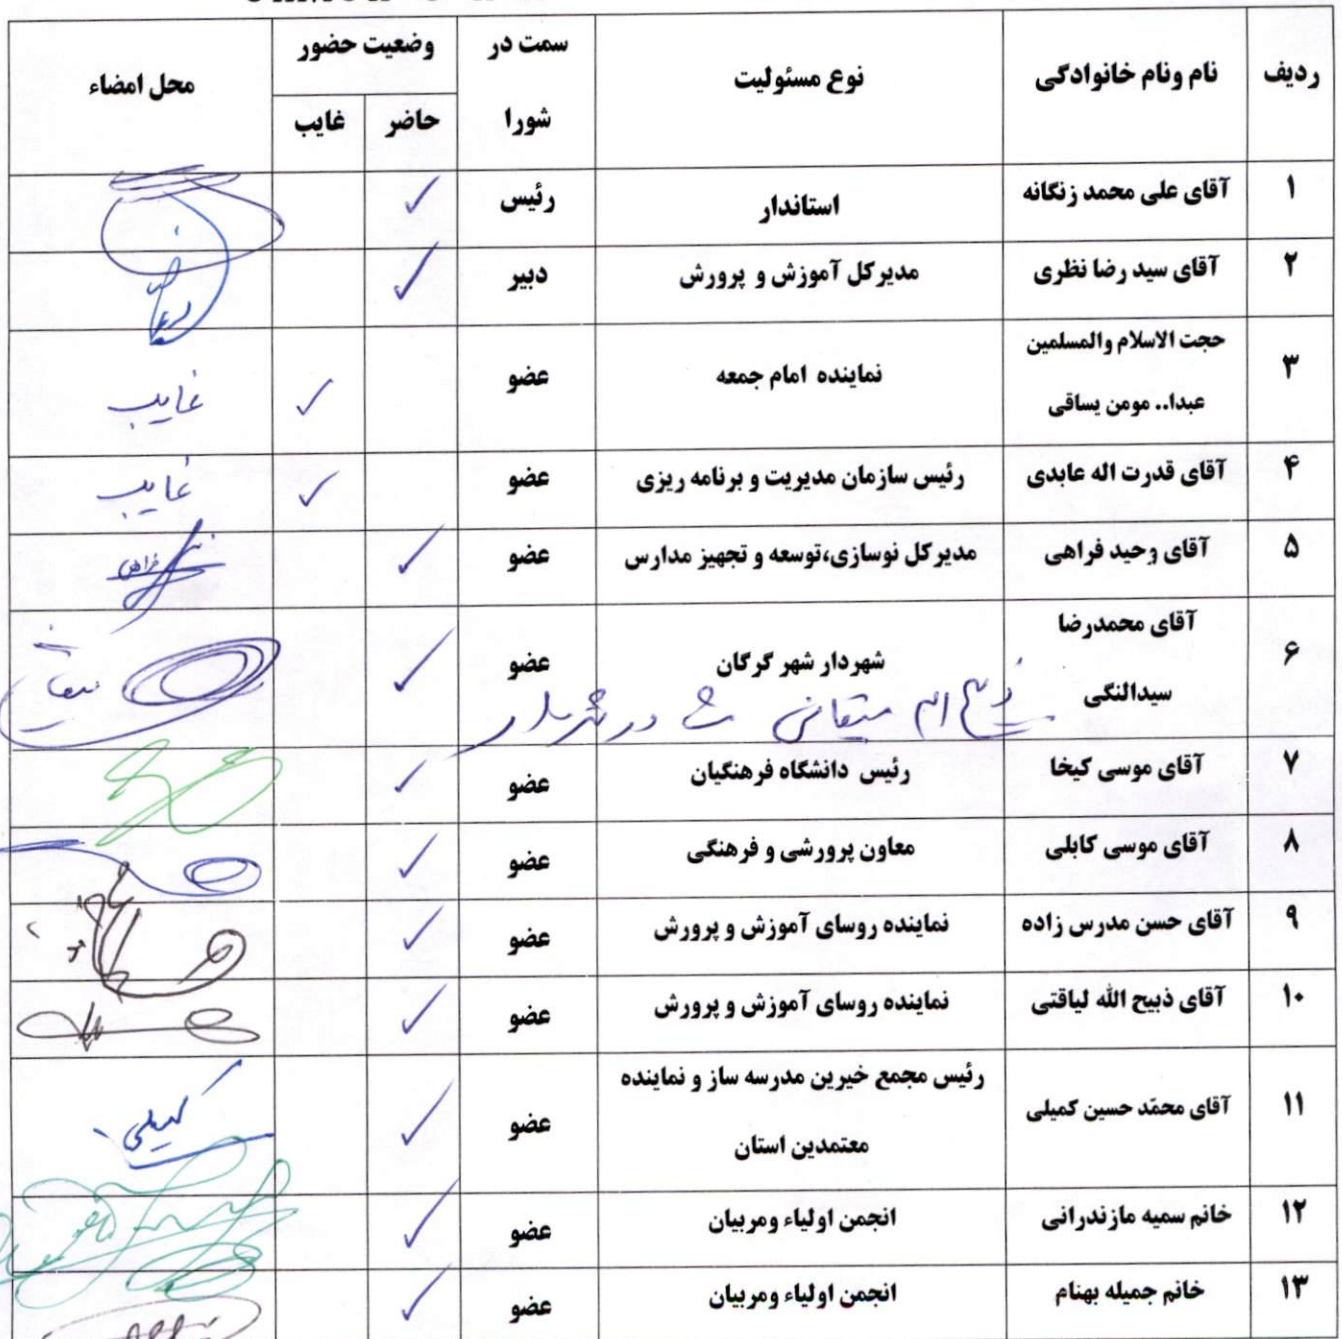 ردیف نام ونام خانوادگی نوع مسئولیت سمت در شورا وضعیت حضور محل امضاء
حاضر غایب
۱ آقای علی محمد زنگانه استاندار رئیس ✓
۲ آقای سید رضا نظری مدیرکل آموزش و پرورش دبیر ✓
۳ حجت الاسلام والمسلمین نماینده امام جمعه عضو ✓ غایب
عبدا.. مومن یساقی
۴ آقای قدرت اله عابدی رئیس سازمان مدیریت و برنامه ریزی عضو ✓ غایب
۵ آقای وحید فراهی مدیرکل نوسازی،توسعه و تجهیز مدارس عضو ✓ فراهی
۶ آقای محمدرضا شهردار شهر گرگان عضو ✓
سیدالنگی
۷ آقای موسی کیخا رئیس دانشگاه فرهنگیان عضو ✓
۸ آقای موسی کابلی معاون پرورشی و فرهنگی عضو ✓
۹ آقای حسن مدرس زاده نماینده روسای آموزش و پرورش عضو ✓
۱۰ آقای ذبیح الله لیاقتی نماینده روسای آموزش و پرورش عضو ✓
۱۱ آقای محمّد حسین کمیلی رئیس مجمع خیرین مدرسه ساز و نماینده عضو ✓ کمیلی
معتمدین استان
۱۲ خانم سمیه مازندرانی انجمن اولیاء ومربیان عضو ✓
۱۳ خانم جمیله بهنام انجمن اولیاء ومربیان عضو ✓